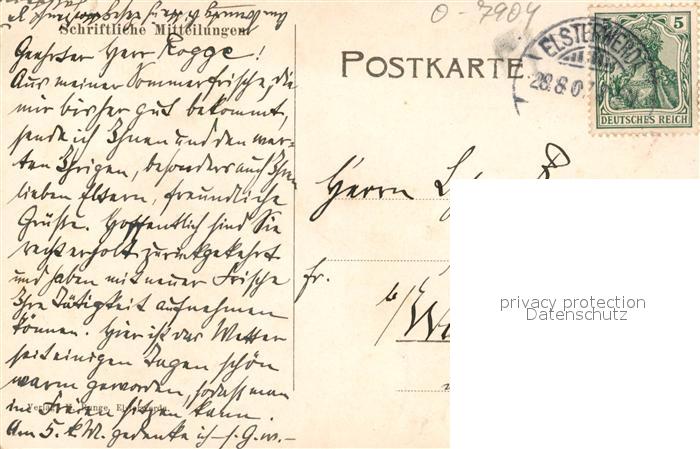 O-7904
Schriftliche Mitteilungen
POSTKARTE
ELSTERWERDA
28.8.0
5
DEUTSCHES REICH
Geehrter Herr Rogge!
Aus meiner Sommerfrische, die
mir bisher gut bekommt,
sende ich Ihnen und den wer-
ten Ihrigen, besonders auch Ihren
lieben Eltern, freundliche
Grüße. Hoffentlich sind Sie
recht erholt zurückgekehrt
und haben mit neuer Frische
Ihre Tätigkeit aufnehmen
können. Hier ist das Wetter
seit einigen Tagen schön
warm geworden, sodass man
im Freien sitzen kann.
Am 5. k. M. gedenke ich s. G. w. –
Herrn
fr.
b/
Verlag Runge, Elsterwerda
privacy protection
Datenschutz